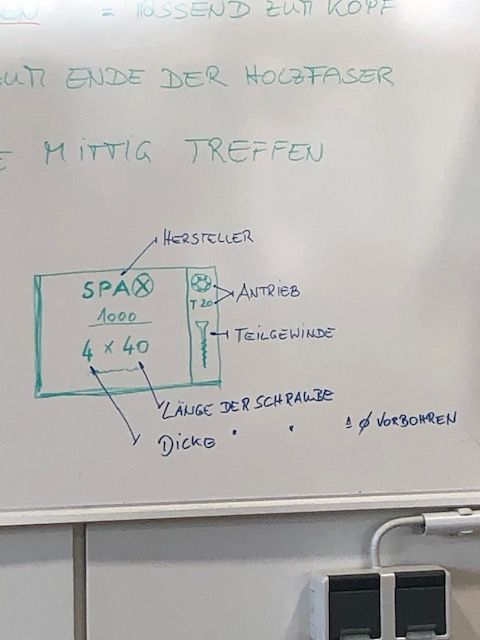 = PASSEND ZUM KOPF
ZUM ENDE DER HOLZFASER
MITTIG TREFFEN
HERSTELLER
SPAX
ANTRIEB
T20
1000
TEILGEWINDE
4 x 40
LÄNGE DER SCHRAUBE
DICKE " " ≙ ø VORBOHREN